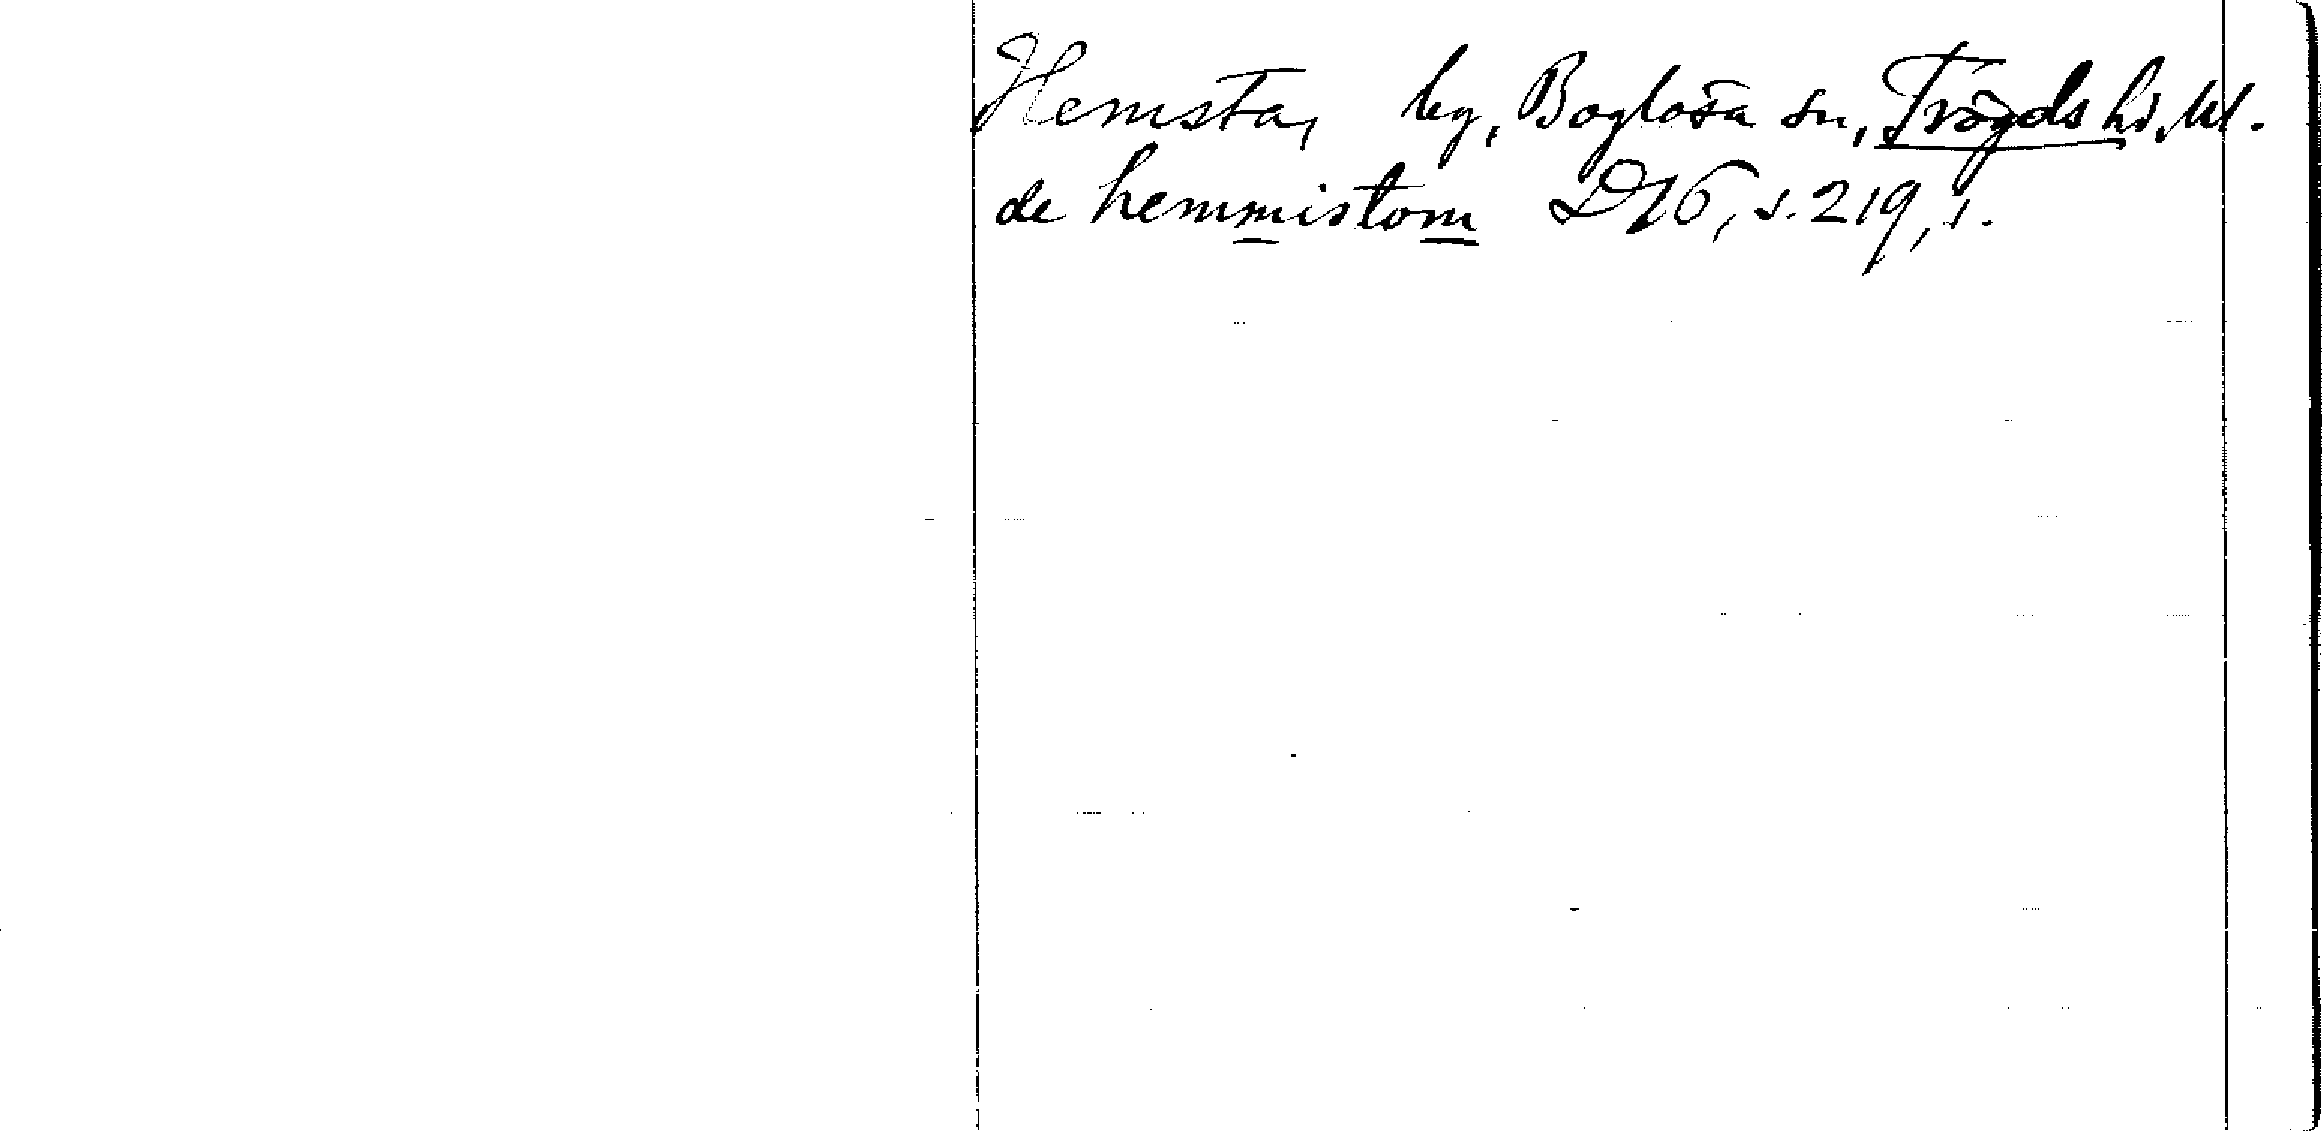 Hemsta, by, Boglösa sn, Trögds hd, Upl.
de hemmistom D16, s. 219, 1.